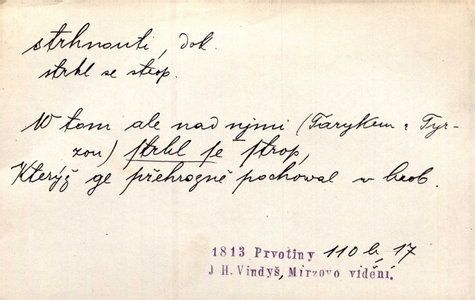 strhnouti, dok.
strhl se strop.
W tom ale nad nymi (Tarykem i Tyr-
zou) strhl se strop,
Kterýž ge přehrozně pochowal w hrob.
1813 Prvotiny 110 b, 17
J H. Vindyš, Mirzovo vidění.